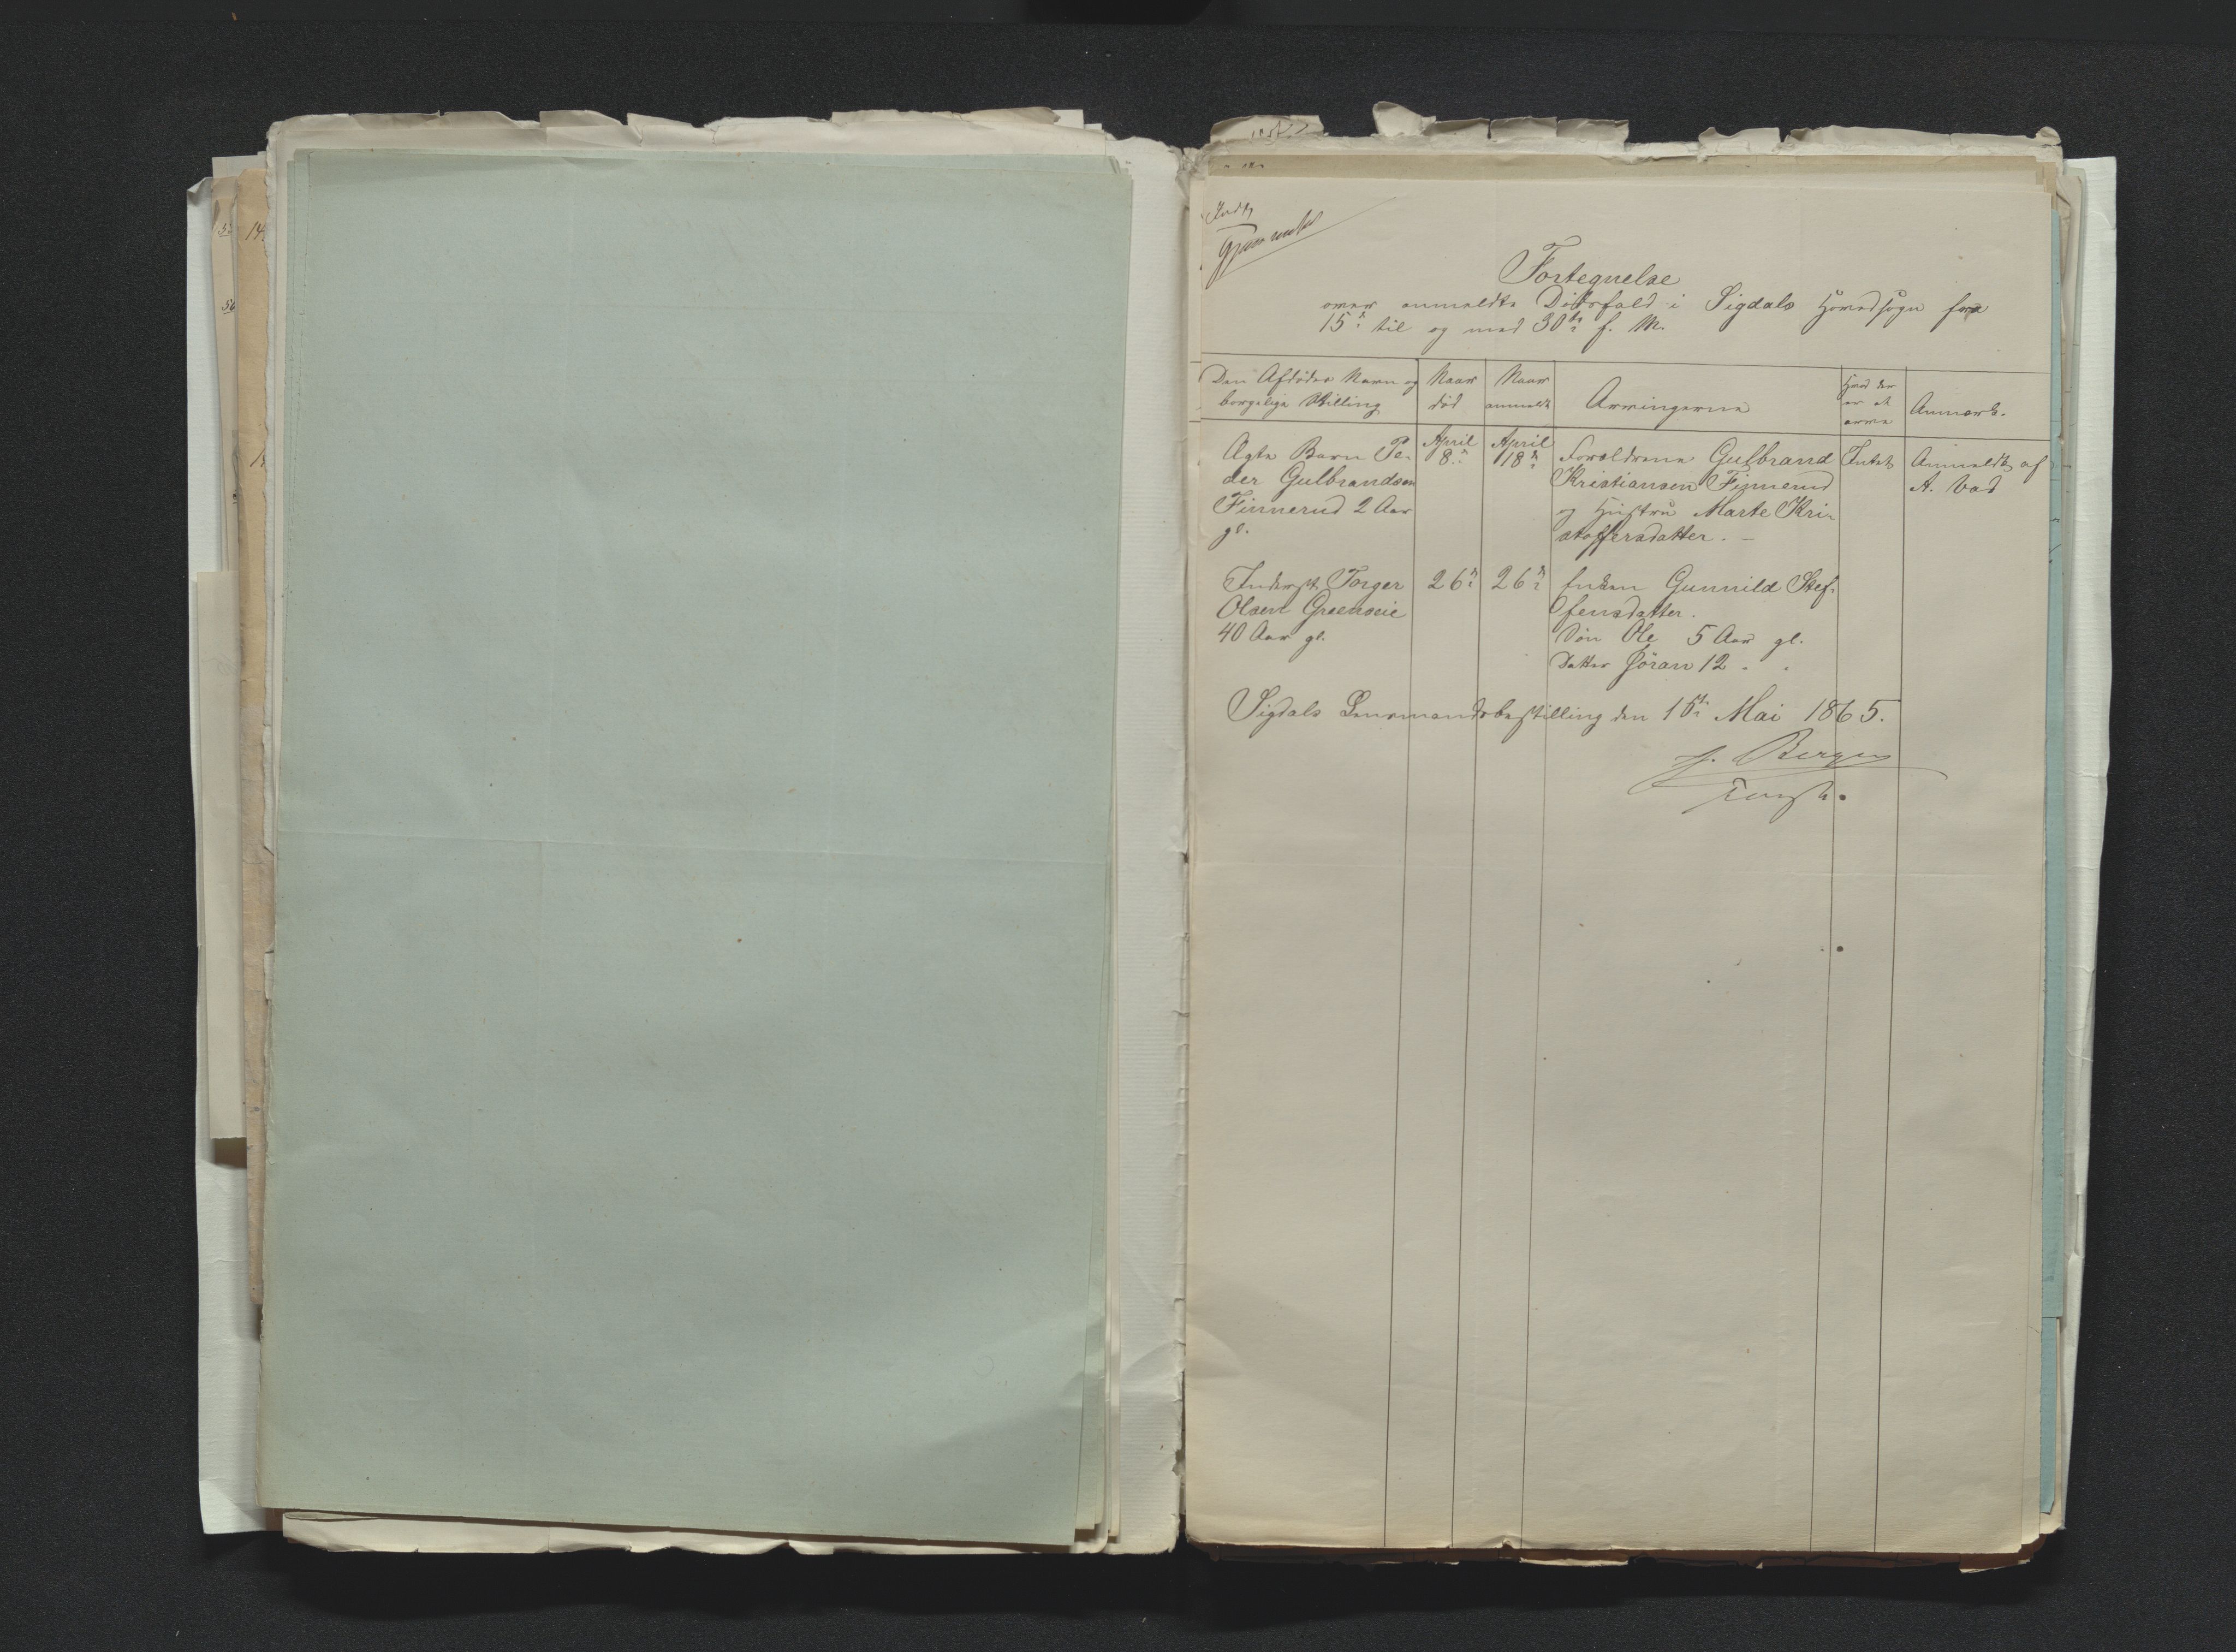 Indt.
Gjennemset
Fortegnelse
over anmeldte Dödsfald i Sigdals Hovedsogn fra
15de til og med 30te f. M.
Den Afdödes Navn og
borgelige Stilling
Naar
död
Naar
anmeldt
Arvingerne
Hvad der
er at
arve
Anmærk.
Ægte Barn Pe-
der Gulbrandsen
Finnerud 2 Aar
gl.
April
8de
April
18de
Forældrene Gulbrand
Kristiansen Finnerud
og Hustru Marte Kri-
stoffersdatter. —
Intet
Anmeldt af
A. Vad
Inderst Torger
Olsen Greenseie
40 Aar gl.
26de
26de
Enken Gunnild Stef-
fensdatter.
Sön Ole 5 Aar gl.
Datter Jöran 12 " "
Sigdals Lensmandsbestilling den 1ste Mai 1865.
Berger